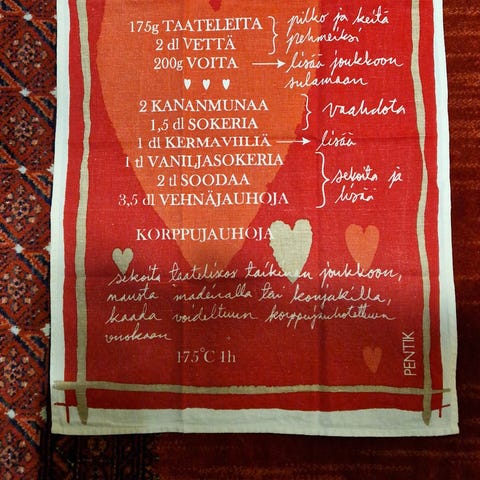 175g TAATELEITA
2 dl VETTÄ
pilko ja keitä
pehmeiksi
200g VOITA
lisää joukkoon
sulamaan
2 KANANMUNAA
1,5 dl SOKERIA
vaahdota
1 dl KERMAVIILIÄ
lisää
1 tl VANILJASOKERIA
2 tl SOODAA
3,5 dl VEHNÄJAUHOJA
sekoita ja
lisää
KORPPUJAUHOJA
sekoita taatelisos taikinan joukkoon,
mausta madeiralla tai konjakilla,
kaada voideltuun korppujauhotettuun
vuokaan
175°C 1h
PENTIK